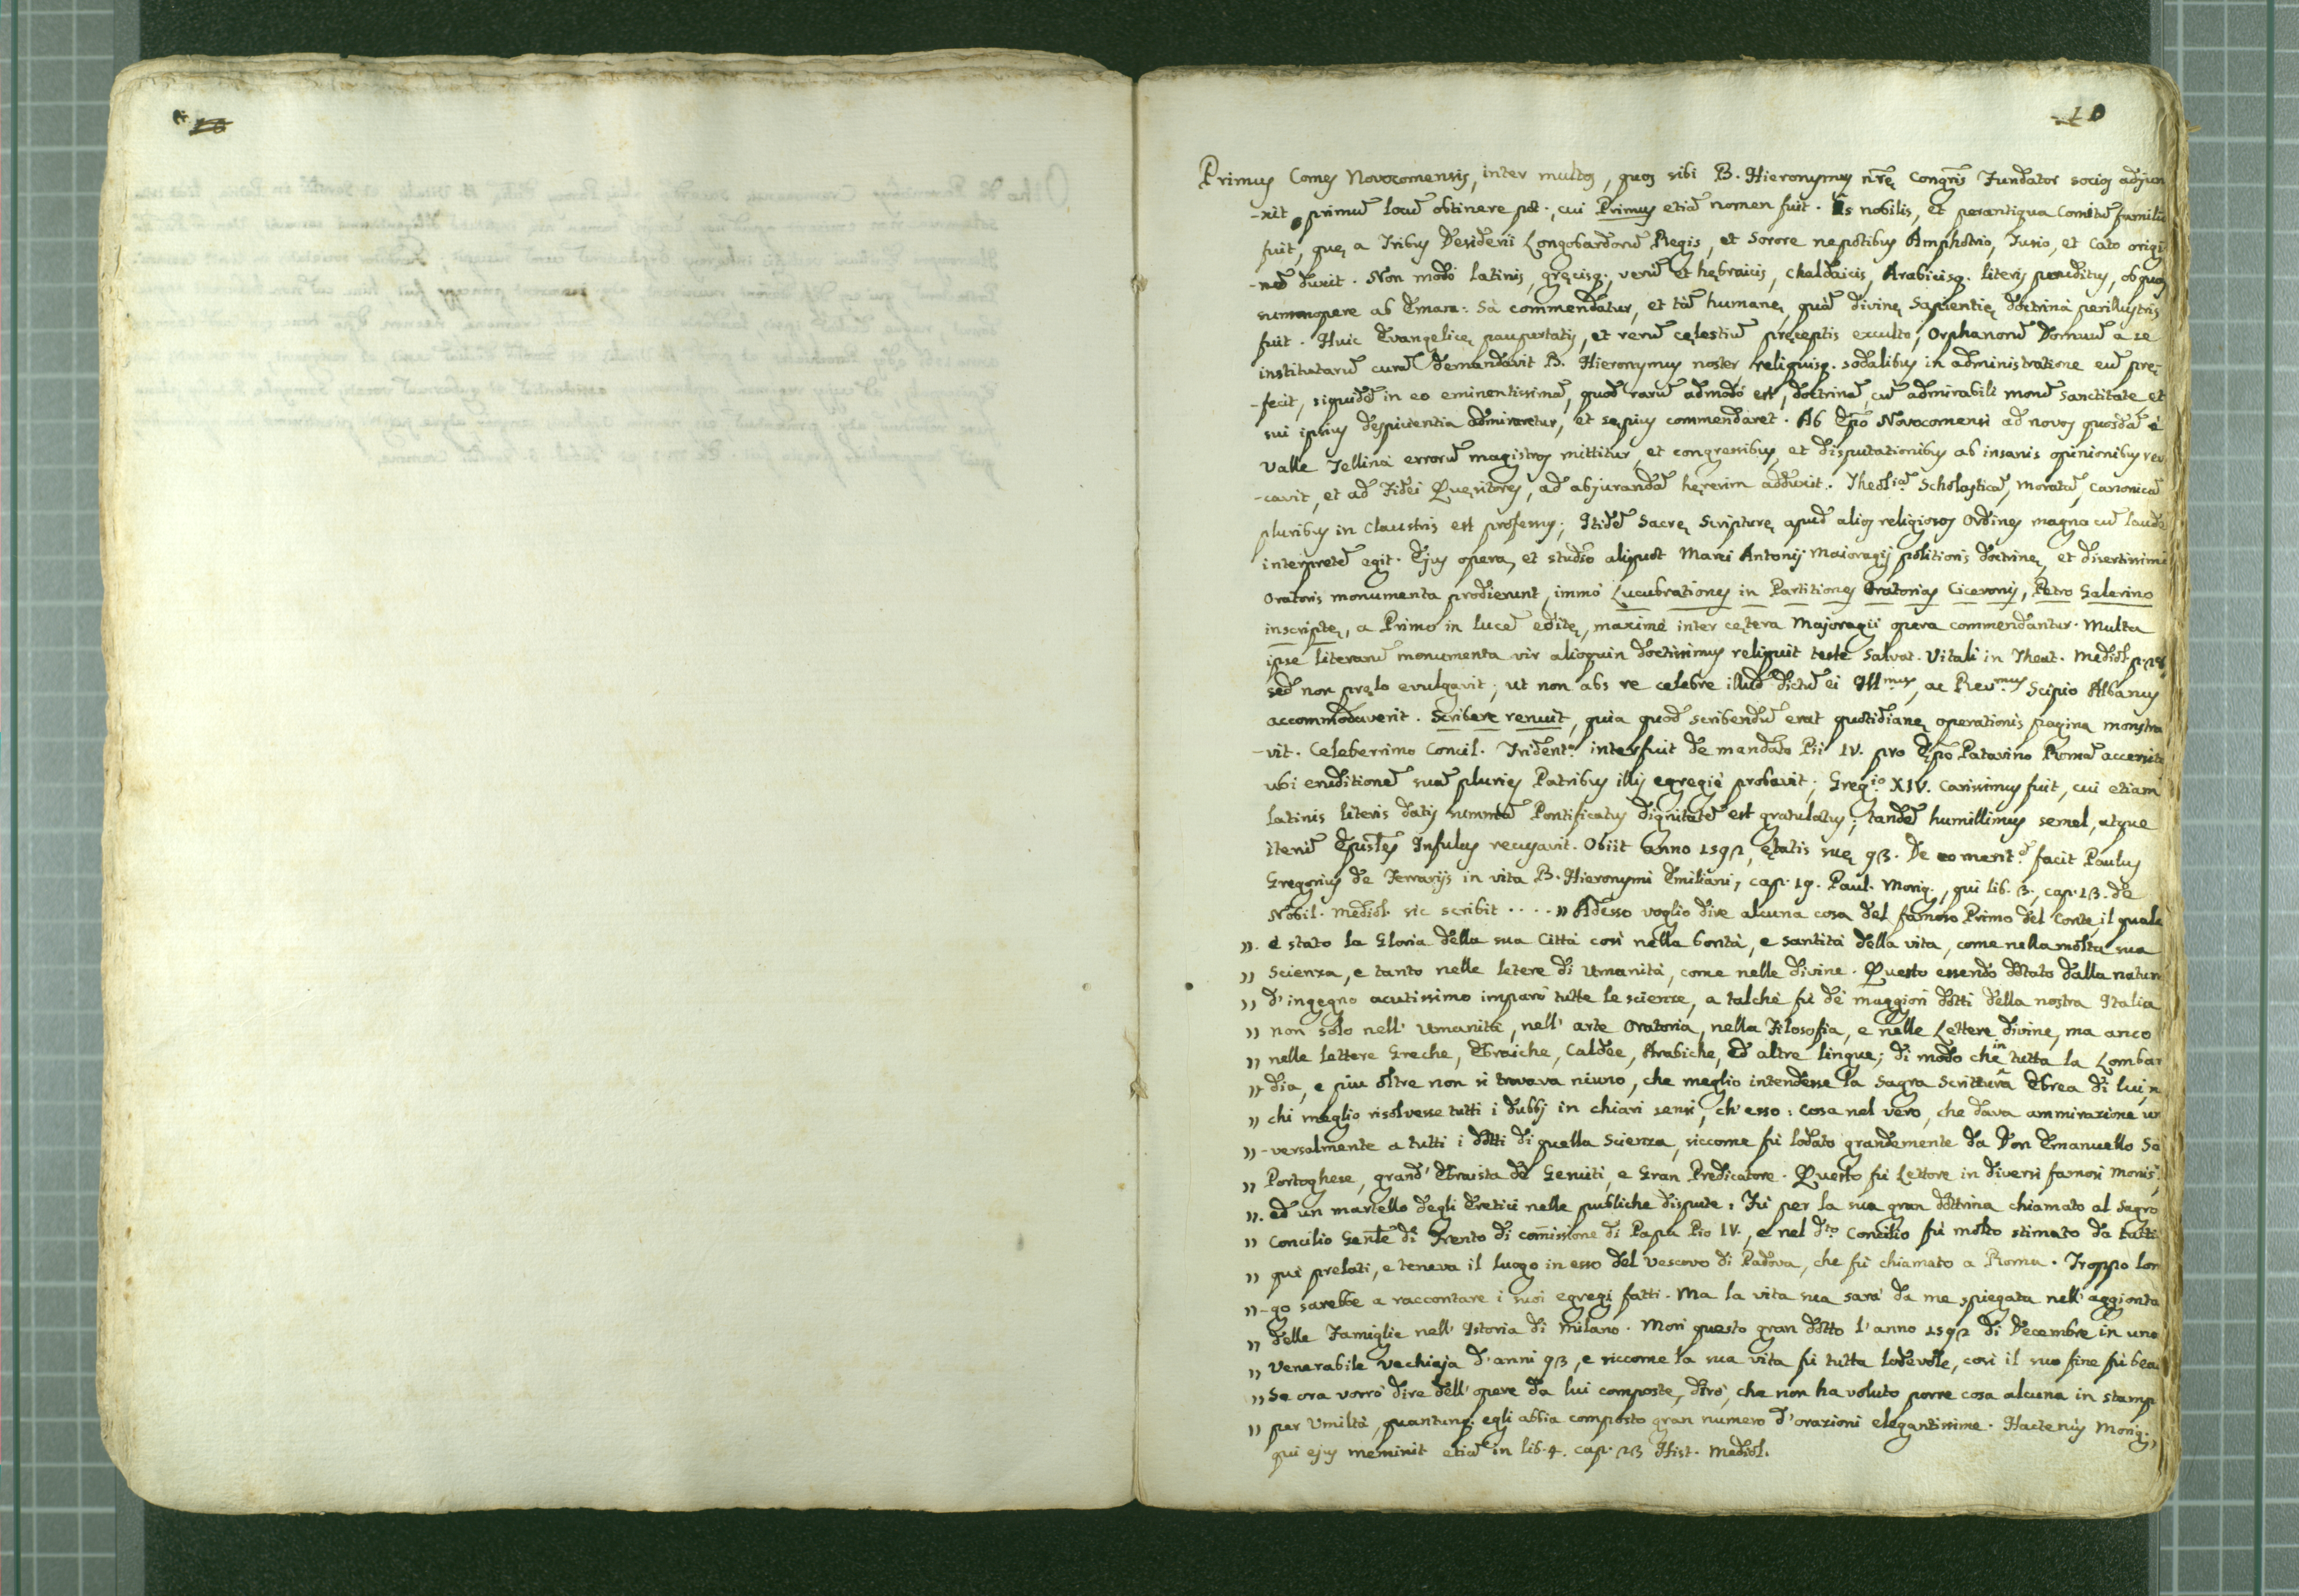 10
Primus Comes Novocomensis, inter multos, quos sibi B. Hieronymus nrę Congnis Fundator socios adjun
-xit, primũ locũ obtinere pot., cui Primus etiã nomen fuit. Is nobilis, et perantiqua Comitũ familia
fuit, quę a Tribus Desiderii Longobardorũ Regis, et Sorore nepotibus Amphotrio, Turio, et Cato origi
-nẽ duxit. Non modò latinis, gręcisq., verũ et hębraicis, chaldaicis, Arabicisq. literis eruditus, ob quas
summopere ab Eman: Sà commendatur, et tã humanę, quã divinę Sapientię doctrinà perillustris
fuit. Huic Evangelicę paupertatis, et rerũ cęlestiũ pręceptis exculto, Orphanorũ Domuũ a se
institutarũ curã demandavit B. Hieronymus noster, reliquisq. sodalibus in administratione eũ prę-
-fecit, siquidẽ in eo eminentissimã, quod rarũ admodò est, doctrinã, cũ admirabili morũ sanctitate et
sui ipsius despicientia admiraretur, et sępius commendaret. Ab Epõ Novocomensi ad novos quosdã è
Valle Tellinà errorũ magistros mittitur, et congressibus, et disputationibus ab insanis opinionibus rev
-cavit, et ad Fidei Quęsitores, ad abjurandã hęresim adduxit. Theol.iã Scholasticã, moratã, canonicã
pluribus in Claustris est professus; Itidẽ Sacrę Scripturę apud alios religiosos Ordines magna cũ laude
interpretẽ egit. Ejus opera, et studio aliquot Marci Antonij Maioragij politioris doctrinę, et disertissimi
Oratoris monumenta prodierunt, immò Lucubrationes in Partitiones Oratorias Ciceronis, Petro Galerino
inscriptę, a Primo in lucẽ editę, maximè inter cętera Majoragii opera commendantur. Multa
ipse literarũ monumenta vir alioquin doctissimus reliquit teste Salvat. Vitali in Theat. Mediol.
sed non prælo evulgavit; ut non abs re celebre illud dictũ ei Ill.mus, ac Rev.mus Scipio Albanus
accommodaverit. Scribere renuit, quia quod scribendũ erat quotidianę operationis pagina monstra
-vit. Celeberrimo Concil. Trident.o interfuit de mandato Pii IV. pro Epõ Patavino Romã accersito
ubi eruditionẽ suã pluries Patribus illis egregiè probavit; Greg.io XIV. Carissimus fuit, cui etiam
latinis literis datis summã Pontificatus dignitatẽ est gratulatus; tandẽ humillimus semel, atque
iterũ Epusles Infulas recusavit. Obiit anno 1592, ętatis suę 93. De eo merit. facit Paulus
Gregorius de Ferrarijs in vita B. Hieronymi Emiliani, cap. 19. Paul. Morig., qui lib. 3., cap. 13. de
Nobil. Mediol. sic scribit .... " Adesso voglio dire alcuna cosa del famoso Primo del Conte, il quale
". è stato la Gloria della sua Città così nella bontà, e santità della vita, come nella molta sua
" Scienza, e tanto nelle letere di Umanità, come nelle divine. Questo essendo dotato dalla natura
" d'ingegno acutissimo imparò tutte le scienze, a talchè fù de maggiori dotti della nostra Italia
" non solo nell' Umanità, nell' arte Oratoria, nella Filosofia, e nelle Lettere divine, ma anco
" nelle lettere Greche, Ebraiche, Caldee, Arabiche, ed altre lingue; di modo che in tutta la Lombar
"- dia, e più oltre non si trovava niuno, che meglio intendesse la Sagra Scrittura Ebrea di lui, n
" chi meglio risolvesse tutti i dubbj in chiari sensi, ch' esso: cosa nel vero, che dava ammirazione un
"- versalmente a tutti i dotti di quella Scienza, siccome fù lodato grandemente da Don Emanuello Sa
" Portoghese, grand' Ebraista de Gesuiti, e Gran Predicatore. Questo fù Lettore in diversi famosi Monis,
". ed un martello degli Eretici nelle publiche dispute: Fù per la sua gran dottrina chiamato al Sagro
" Concilio Genle di Trento di comissione di Papa Pio IV., e nel d.o Concilio fù molto stimato da tutti
" què prelati, e teneva il luogo in esso del Vescovo di Padova, che fù chiamato a Roma. Troppo lon
"- go sarebbe a raccontare i suoi egregi fatti. Ma la vita sua sarà da me spiegata nell' aggionta
" delle Famiglie nell' Istoria di Milano. Morì questo gran dotto l' anno 1592 di Decembre in una
" Venerabile vechiaja d' anni 93, e siccome la sua vita fù tutta lodevole, così il suo fine fù bea
" Se ora vorrò dire dell' opere da lui composte, dirò, che non ha voluto porre cosa alcuna in stamp
" per Umiltà, quantunq. egli abbia composto gran numero d' orazioni elegantissime. Hactenùs Morig.,
qui ejus meminit etiã in lib. 4. cap. 23 Hist. Mediol.